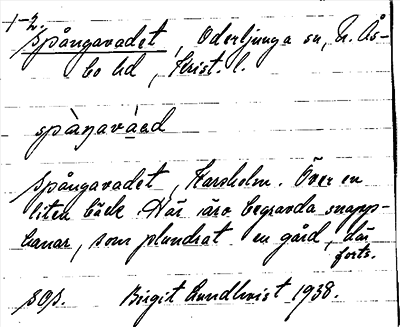 1-2.
Spångavadet, Oderljunga sn, N. Ås-
bo hd, Krist. l.
spàŋavàad
Spångavadet, Harsholm. Över en
liten bäck. Här äro begravda snapp-
hanar, som plundrat en gård, där
forts.
Birgit Lundkvist 1938.